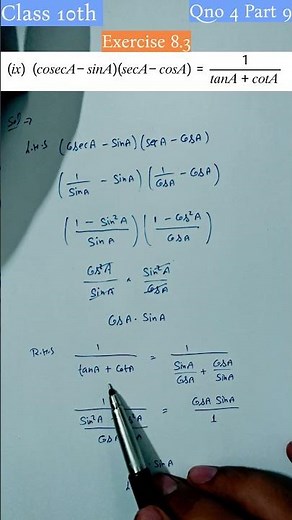 Class 10th Qno 4 Part 9
Exercise 8.3
(ix) (cosecA – sinA)(secA – cosA) = 1 / (tanA + cotA)
Sol →
L.H.S (CosecA – SinA) (SecA – CosA)
(1/SinA – SinA) (1/CosA – CosA)
((1 – Sin²A)/SinA) ((1 – Cos²A)/CosA)
Cos²A/SinA × Sin²A/CosA
CosA · SinA
R.H.S 1/(tanA + CotA) = 1/(SinA/CosA + CosA/SinA)
= CosA SinA / 1
SinA